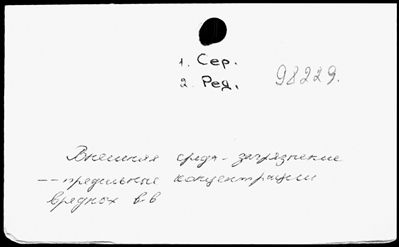 1. Сер.
2. Ред.
98229.
Внешняя среда - загрязнение
-- предельные концентрации
вредных в-в